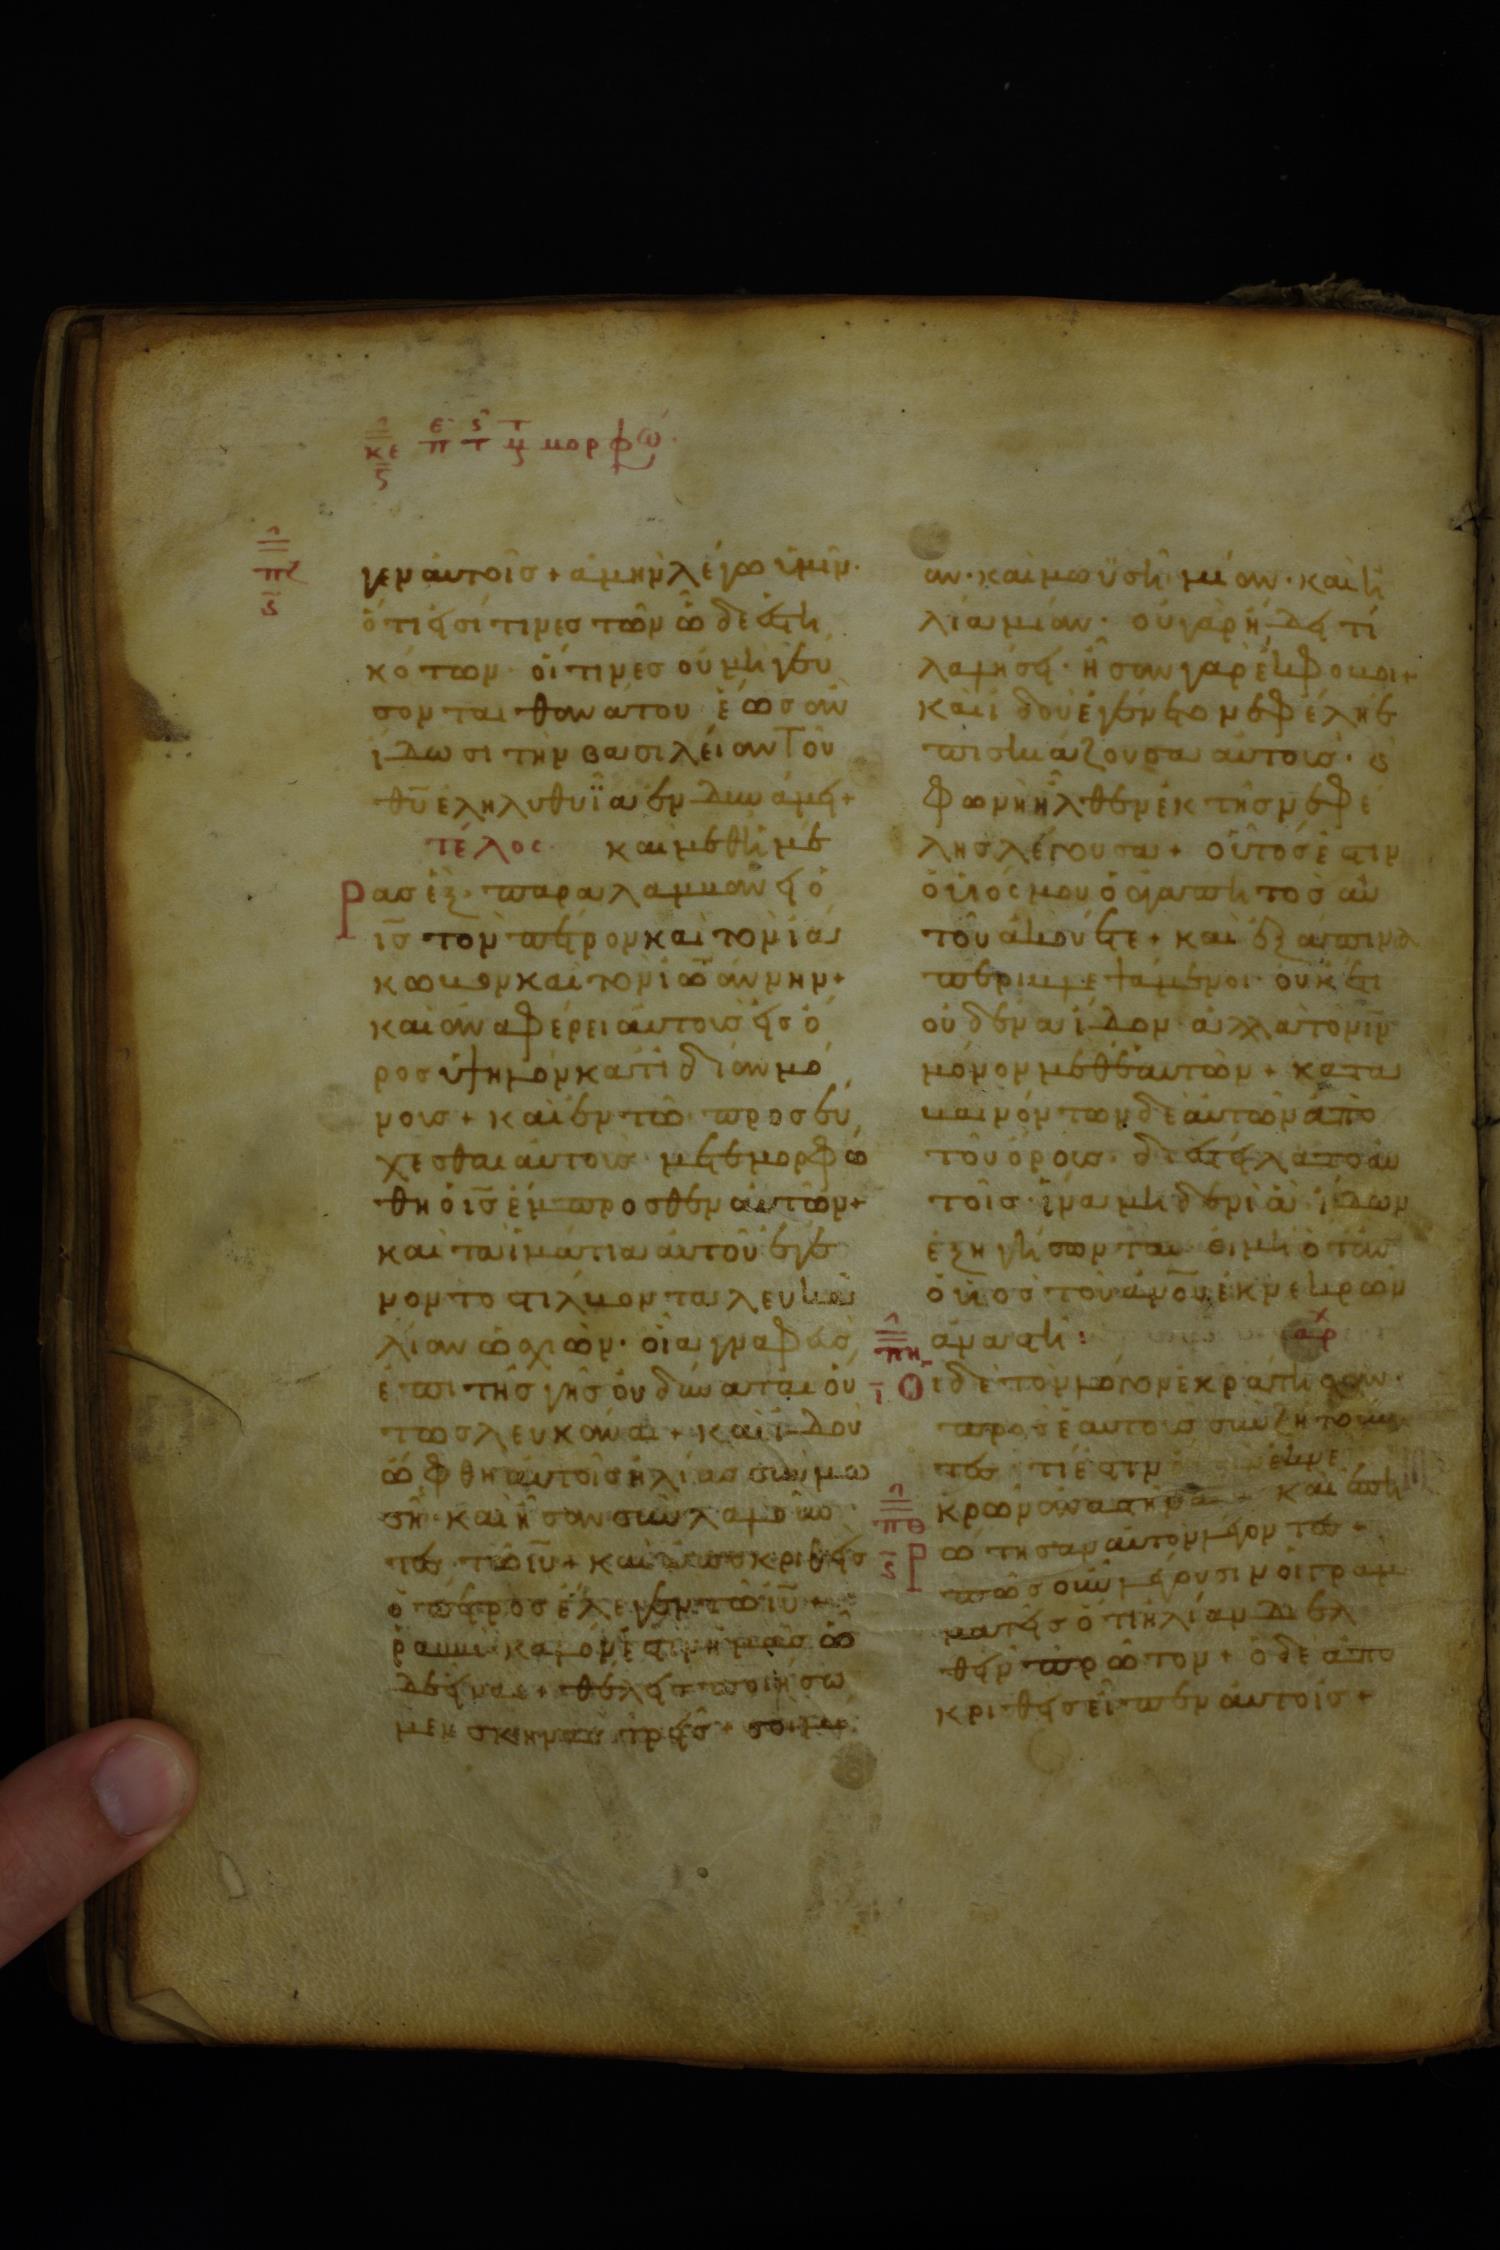 κε ε π ς τ τ μ μορφω
ζ
πζ
ς
γεν αυτοῖς + ἀμὴν λέγω ὑμῖν·
ὅτι εἰσί τινες τῶν ὧδε ἑστη
κότων· οἵτινες οὐ μὴ γεύ
σονται θανάτου ἕως ἂν
ἴδωσι τὴν βασιλείαν τοῦ
θῡ ἐληλυθυῖαν ἐν δυνάμει +
τέλος καὶ μεθ ἡμέ
ρας ἓξ· παραλαμβάνει ὁ
ις̄ τὸν πέτρον καὶ τὸν ἰά
κωβον καὶ τὸν ἰωάννην +
καὶ ἀναφέρει αὐτοὺς εἰς ὄ
ρος ὑψηλὸν κατιδίαν μό
νους + καὶ ἐν τῶ προσεύ
χεσθαι αὐτοὺς μετεμορφώ
θη ὁ ις̄ ἔμπροσθεν αὐτῶν +
καὶ τὰ ἱμάτια αὐτοῦ ἐγέ
νοντο στίλβοντα λευκὰ
λίαν ὡς χιὼν· οἷα γναφεὺς
ἐπι τῆς γῆς οὐ δύναται οὕ
τως λευκᾶναι + καὶ ἰδοὺ
ὤφθη αὐτοῖς ἡλίας σὺν μω
σῆ· καὶ ἦσαν συλλαλοῦν
τες τῶ ιῡ + καὶ ἀποκριθεὶς
ὁ πέτρος ἔλεγεν τῶ ιῡ +
ῥαββὶ καλόν ἐστιν ἡμᾶς ὧ
δε εἶναι + θέλεις ποιήσω
μεν σκηνὰς τρεῖς + σοὶ μί
αν· καὶ μωϋσῆ μίαν· καὶ ἡ
λία μίαν· οὐ γὰρ ἤδει τί
λαλήσει· ἦσαν γὰρ ἔμφοβοι +
καὶ ἰδοὺ ἐγένετο νεφέλη ἐ
πισκιάζουσα αὐτοῖς· καὶ
φωνὴ ἦλθεν ἐκ τῆς νεφέ
λης λέγουσα + οὗτός ἐστιν
ὁ υἱός μου ὁ ἀγαπητὸς αὐ
τοῦ ἀκούετε + καὶ ἐξάπινα
περιβλεψάμενοι· οὐκέτι
οὐδένα ἴδον ἀλλὰ τὸν ιν̄
μόνον μεθ ἑαυτῶν + κατα
βαινόντων δὲ αὐτῶν ἀπὸ
τοῦ ὄρους· διεστείλατο αὐ
τοῖς· ἵνα μηδενὶ ἃ ἴδων
ἐξηγήσωνται εἰ μὴ ὅταν
ὁ υἱὸς τοῦ ἀνοῡ ἐκ νεκρῶν
ἀναστῆ: αρχ
πη
ι Ο ἱ δὲ τὸν λόγον ἐκράτησαν·
πρὸς ἑαυτοὺς συνζητοῦν
τες τί ἐστιν ἐκ νε
κρῶν ἀναστῆναι + καὶ ἐπη
πθ
ς ρώτησαν αὐτὸν λέγοντες +
πῶς οὖν λέγουσιν οἱ γραμ
ματεῖς ὅτι ἡλίαν δεῖ ἐλ
θεῖν πρῶτον + ὁ δὲ ἀπο
κριθεὶς εἶπεν αὐτοῖς +